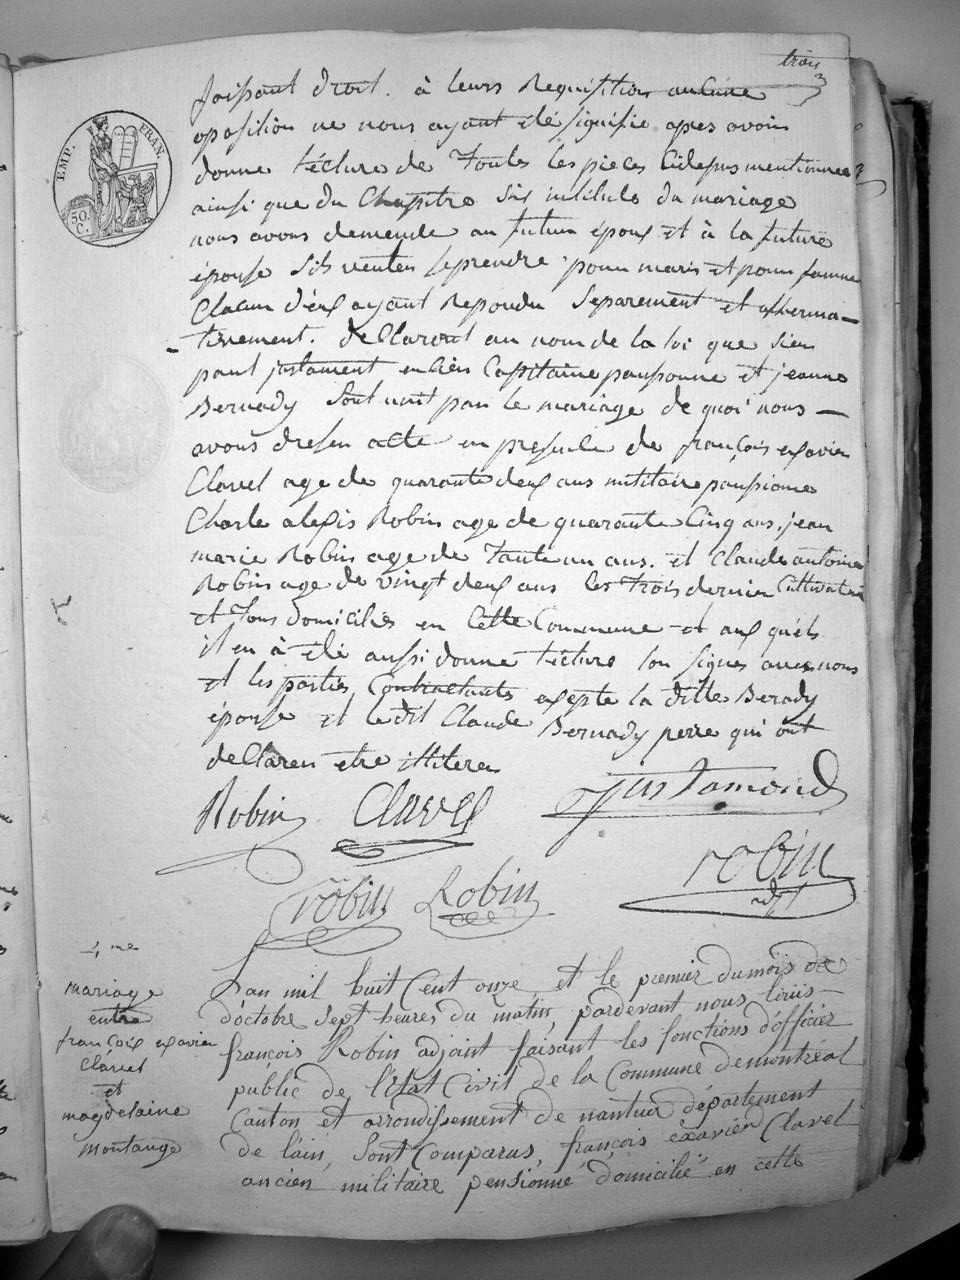 trois
EMP. FRAN.
50. C.
faisant droit. à leurs Requisition aucune
oposition ne nous ayant été signifié apres avoir
donne lécture de Toutes les pieces Cidepus mentionnee
ainsi que du Chapitre Six intitulé du mariage
nous avons demende au futur époux et à la future
épouse Sils veulen se prendre pour maris et pour famme
Chacun d'eux ayant Repondu Separement et afferma-
tivement. declarons au nom de la loi que sieur
paul justamont encien Capitaine pansionne et jeanne
Bernady Sont unit par le mariage de quoi nous
avons dressen acte en presence de françois exavier
Clavel age de quarante deux ans militaire pansionne
Charle alexis Robin age de quarante Cinq ans. jean
marie Robin age de Tante un ans. et Claude antoine
Robin age de vingt deux ans les trois dernier Cultivateur
et Tous domiciliés en Cette Commune et aux quels
il en à été aussi donne lécture son signes avec nous
et les parties Contractante exepte la ditte Berady
épouse et le dit Claude Bernady perre qui ont
declaren etre illiteres
Robin Clavel justamond
robin Robin robin
adjt
4me
mariage
entre
françois exavier
Clavel
et
magdelaine
montange
Lan mil huit Cent onze, et le premier du mois de
d'octobre sept heures du matin, pardevant nous louis
françois Robin adjoint faisant les fonctions d'officier
public de l'état Civil de la Commune de montréal
Canton et arrondissement de nantua département
de lain, Sont Comparus, françois éxavier Clavel
ancien militaire pensionné domicilié en cette